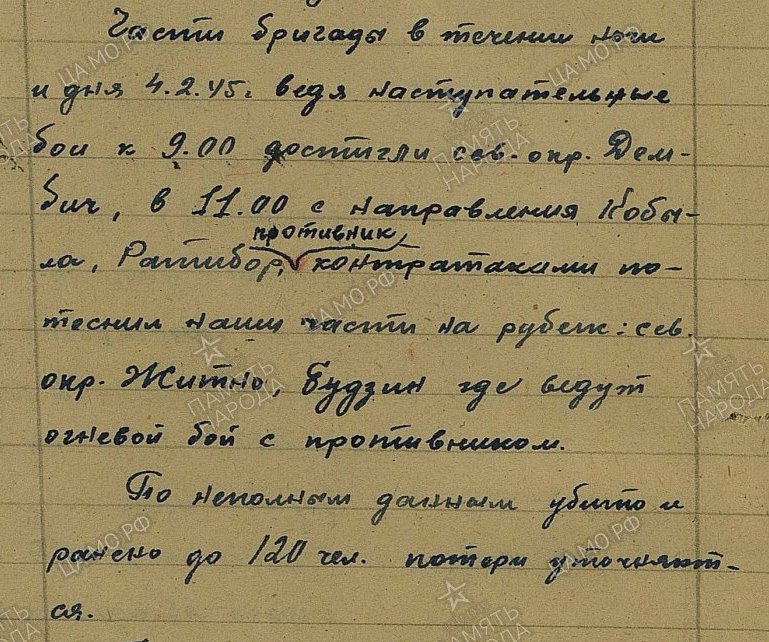 Части бригады в течении ночи
и дня 4.2.45г. ведя наступательные
бои к 9.00 достигли сев. окр. Дем-
бич, в 11.00 с направления Кобы-
противник,
ла, Ратибор, контратаками по-
теснил наши части на рубеж: сев.
окр. Житно, Будзин где ведут
огневой бой с противником.
По неполным данным убито и
ранено до 120 чел. потери уточняют-
ся.
ЦАМО.РФ
ПАМЯТЬ
НАРОДА